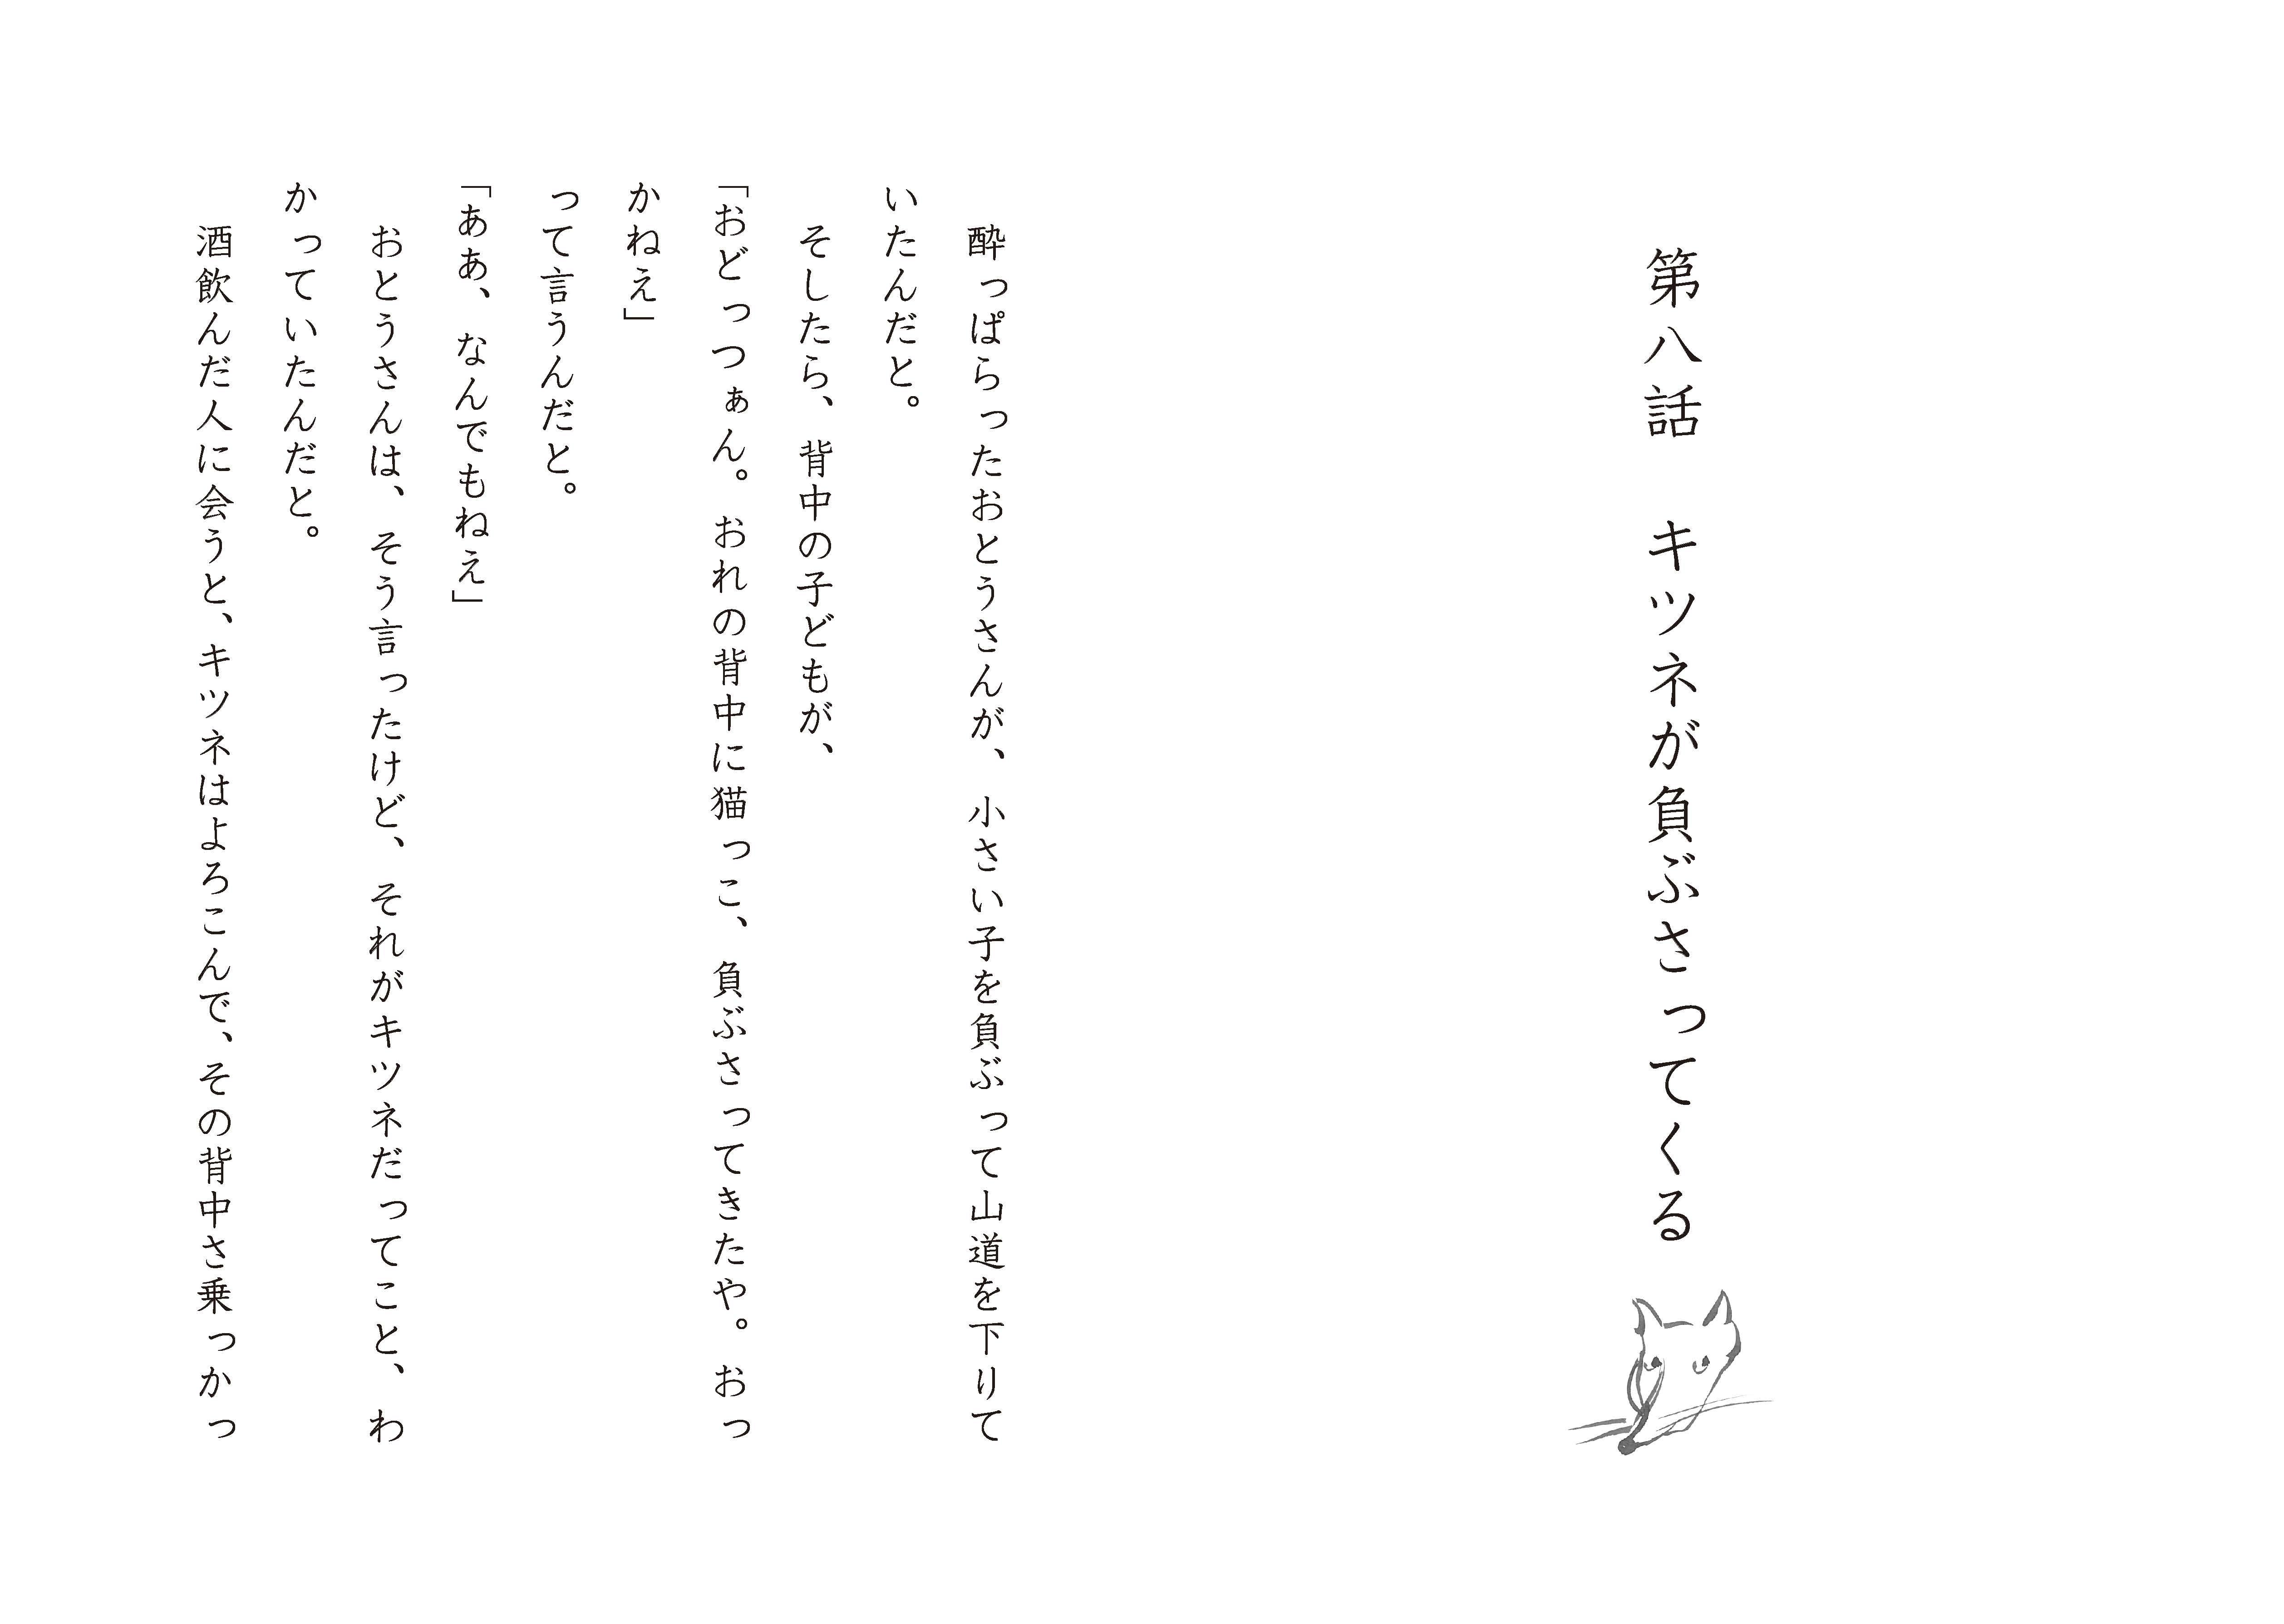 第八話　キツネが負ぶさってくる
　酔っぱらったおとうさんが、小さい子を負ぶって山道を下りて
いたんだと。
　そしたら、背中の子どもが、
「おどっつぁん。おれの背中に猫っこ、負ぶさってきたや。おっ
かねえ」
って言うんだと。
「ああ、なんでもねえ」
　おとうさんは、そう言ったけど、それがキツネだってこと、わ
かっていたんだと。
　酒飲んだ人に会うと、キツネはよろこんで、その背中さ乗っかっ